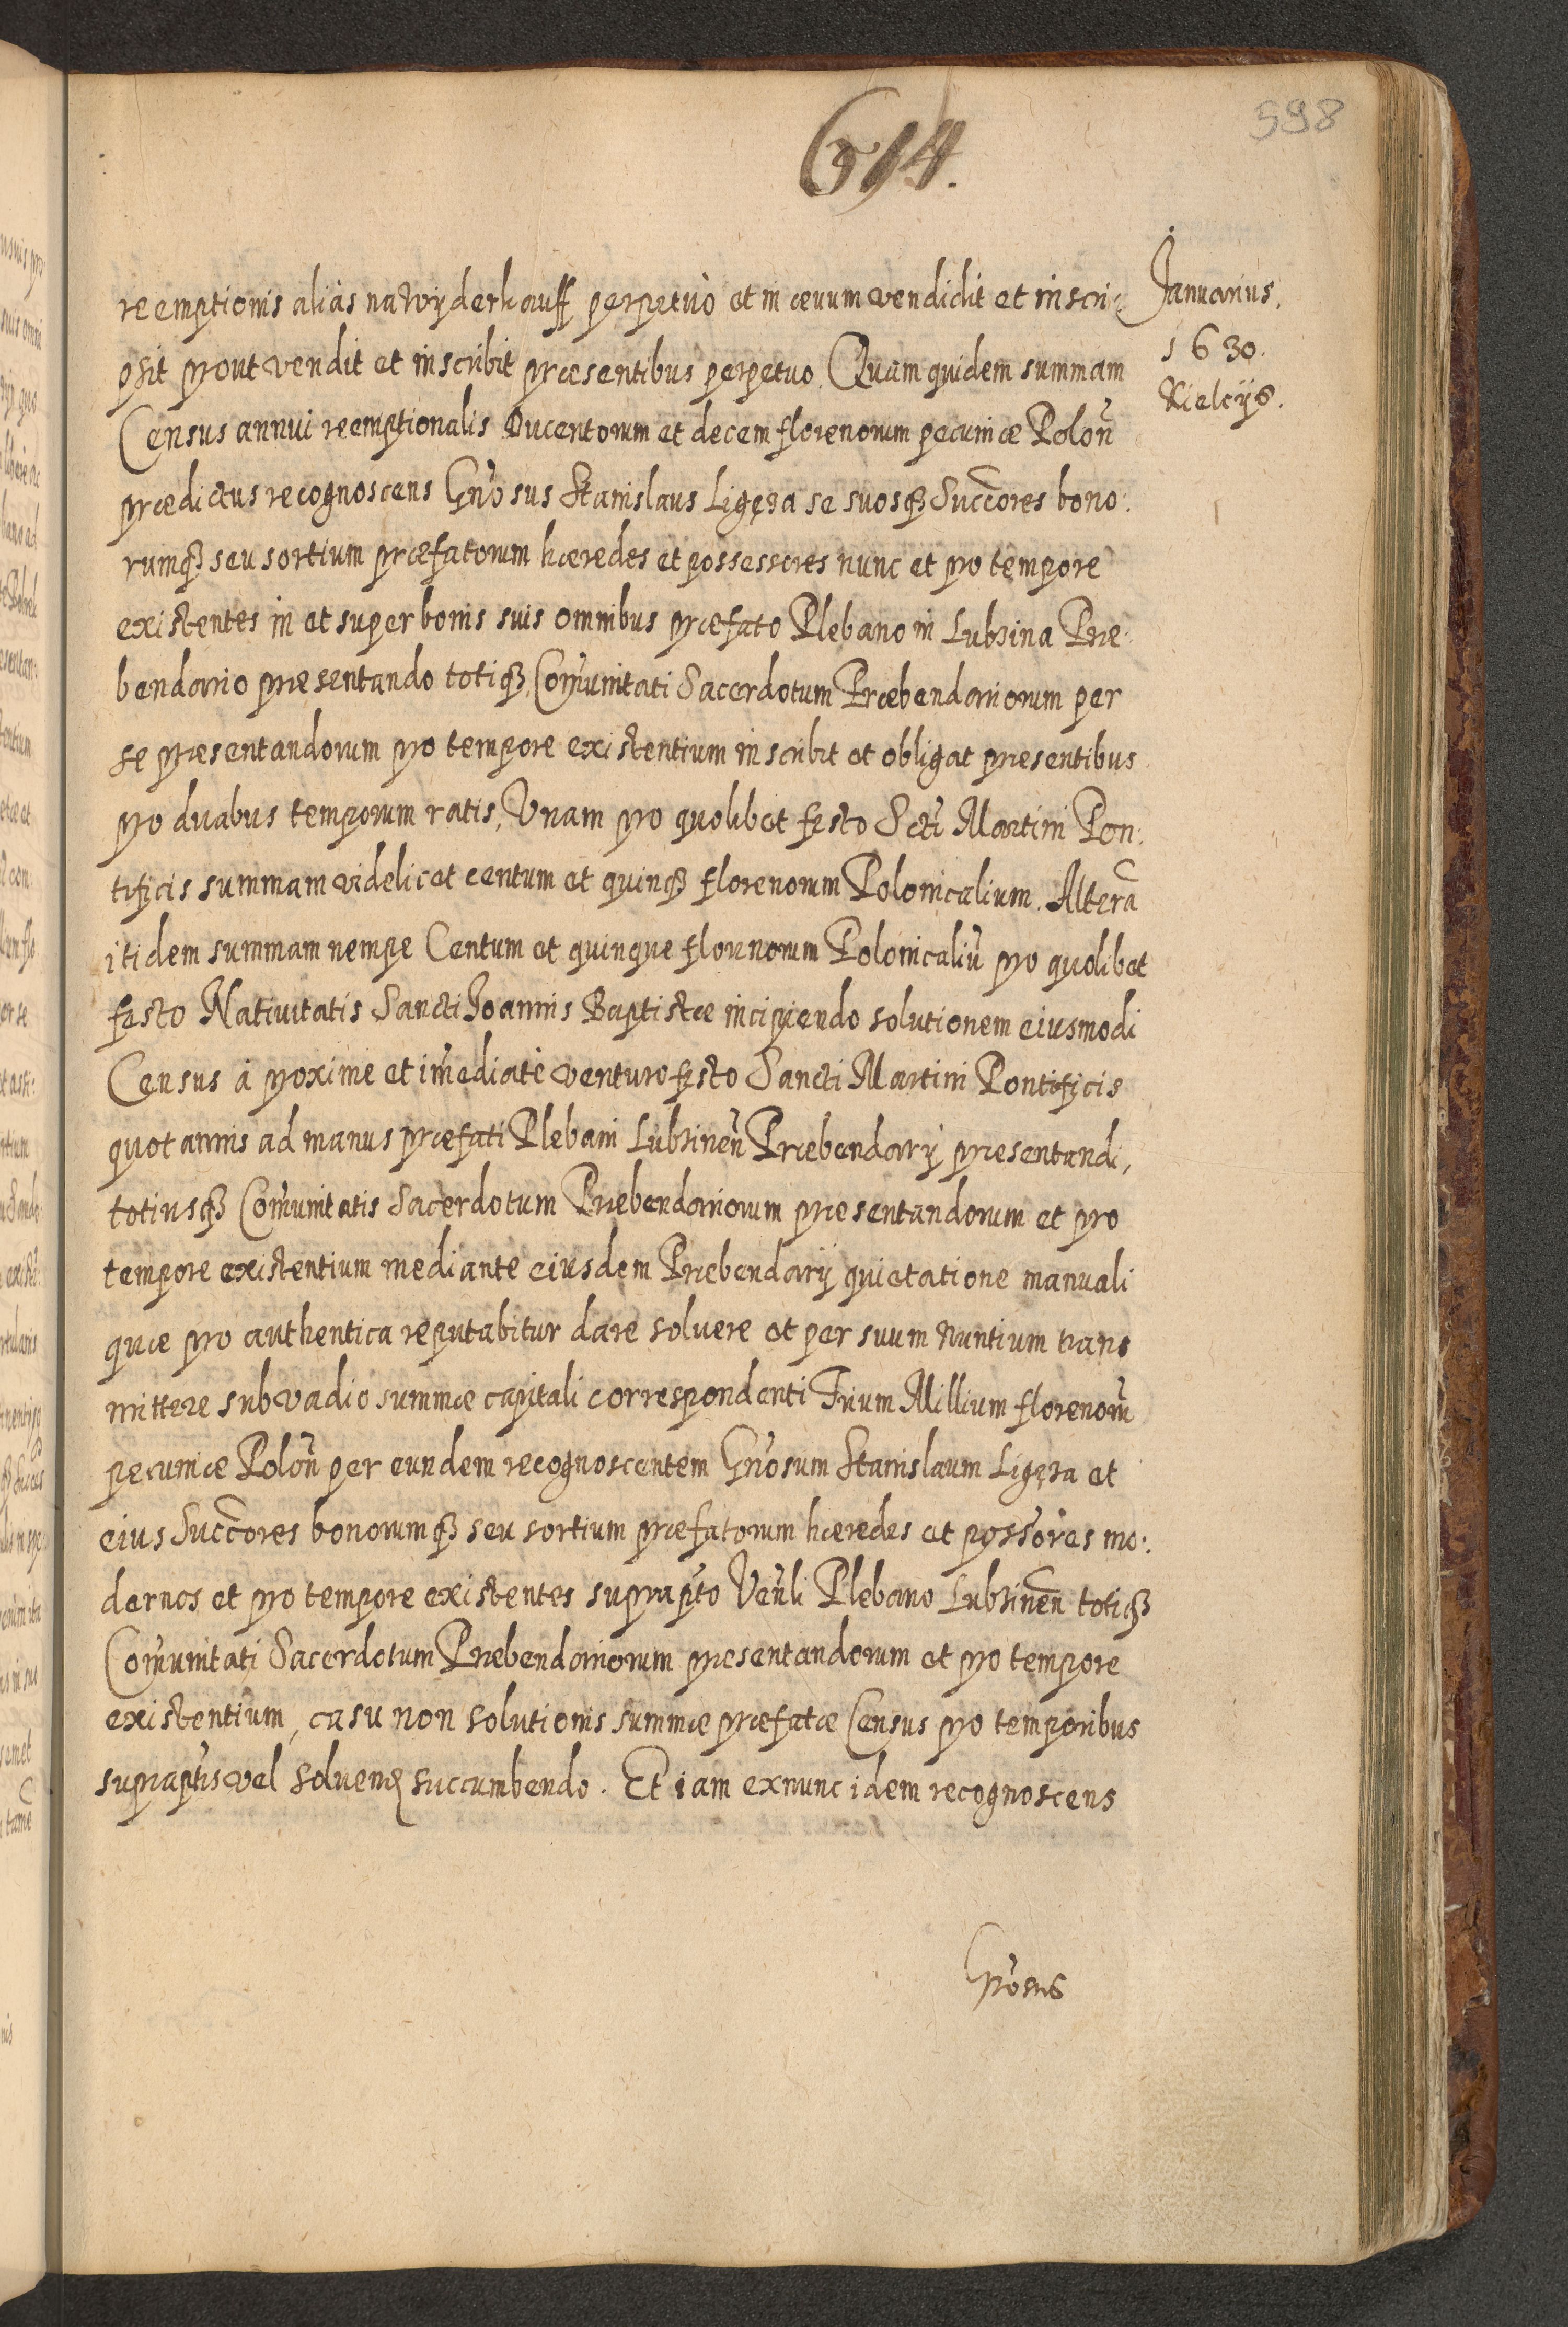 598
614.
Januarius.
1630.
Kielcijs.
reemptionis aliàs na wyderkauff perpetuò et in æuum vendidit et inscri-
psit prout vendit et inscribit præsentibus perpetuo. Quam quidem summam
Census annui reemptionalis Ducentorum et decem florenorum pecuniæ Polon̄
prædictus recognoscens Gn̄osus Stanislaus Ligęza se suosq₃ Succ̄ores bono:
rumq₃ seu sortium præfatorum hæredes et possessores nunc et pro tempore
existentes in et super bonis suis omnibus præfato Plebano in Lubzina Præ:
bendario præsentando totiq₃ Com̄unitati Sacerdotum Præbendariorum per
se præsentandorum pro tempore existentium inscribit et obligat præsentibus
pro duabus temporum ratis, Vnam pro quolibet festo Scti Martini Pon:
tificis summam videlicet centum et quinq₃ florenorum Polonicalium. Alterā
itidem summam nempe Centum et quinque florenorum Polonicaliū pro quolibet
festo Natiuitatis Sancti Joannis Baptistæ incipiendo solutionem eiusmodi
Census à proximè et im̄ediatè venturo festo Sancti Martini Pontificis
quotannis ad manus præfati Plebani Lubzinen̄ Præbendarij præsentandi,
totiusq₃ Com̄unitatis Sacerdotum Præbendariorum præsentandorum et pro
tempore existentium mediante eiusdem Præbendarij quietatione manuali
quæ pro authentica reputabitur dare soluere et per suum Nuntium trans
mittere sub vadio summæ capitali correspondenti Trium Millium florenorū
pecuniæ Polon̄ per eundem recognoscentem Gn̄osum Stanislaum Ligęza et
eius Succ̄ores bonorumq₃ seu sortium præfatorum hæredes et poss̄ores mo:
dernos et pro tempore existentes suprap̄to Ven̄li Plebano Lubzinen̄ totiq₃
Com̄unitati Sacerdotum Præbendariorum præsentandorum et pro tempore
existentium, casu non solutionis summæ præfatæ Census pro temporibus
suprap̄tis vel soluend succumbendo. Et iam ex nunc idem recognoscens
Gn̄osus